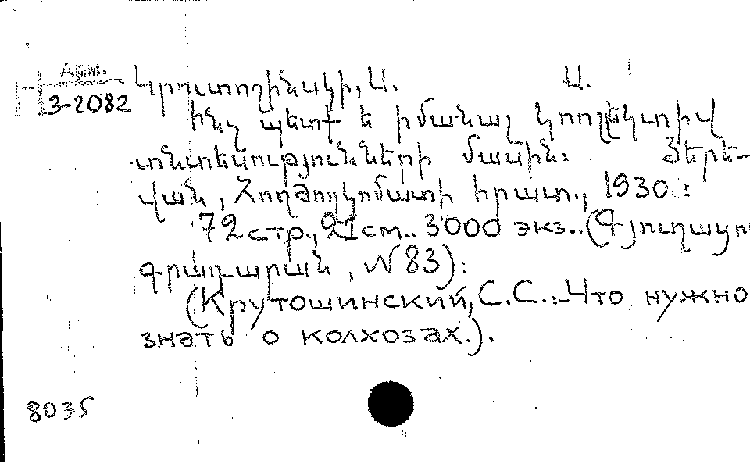 Արտ.
3-2082
Կրուտոշինսկի, Ս. Ս.
Ինչ պետք ե իմանալ կոոլեկտիվ
տնտեսություններ��ի մասին: Յերե-
վան, Հողժողկոմատի հրատ., 1930.:
72 стр., 21 cm.. 3000 экз..(Գյուղացու
գրադարան, N 83):
(Крутошинский, С.С.:-Что нужно
знать о колхозах.).
8035